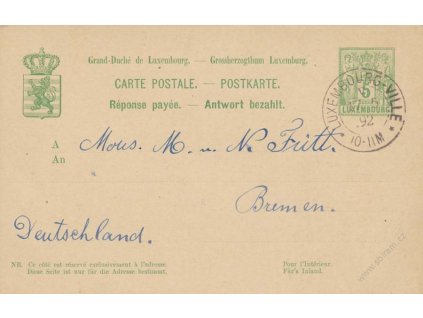 Grand-Duché de Luxembourg. — Grossherzogthum Luxemburg.
CARTE POSTALE. — POSTKARTE.
Réponse payée. — Antwort bezahlt.
5
LUXEMBOURG
LUXEMBOURG-VILLE
92
10-11M
A
An
Mons. M. u. N. Fritt.
Bremen.
Deutschland.
NB. Ce côté est réservé exclusivement à l'adresse.
Diese Seite ist nur für die Adresse bestimmt.
Pour l'Intérieur.
Für's Inland.
www.solram.cz